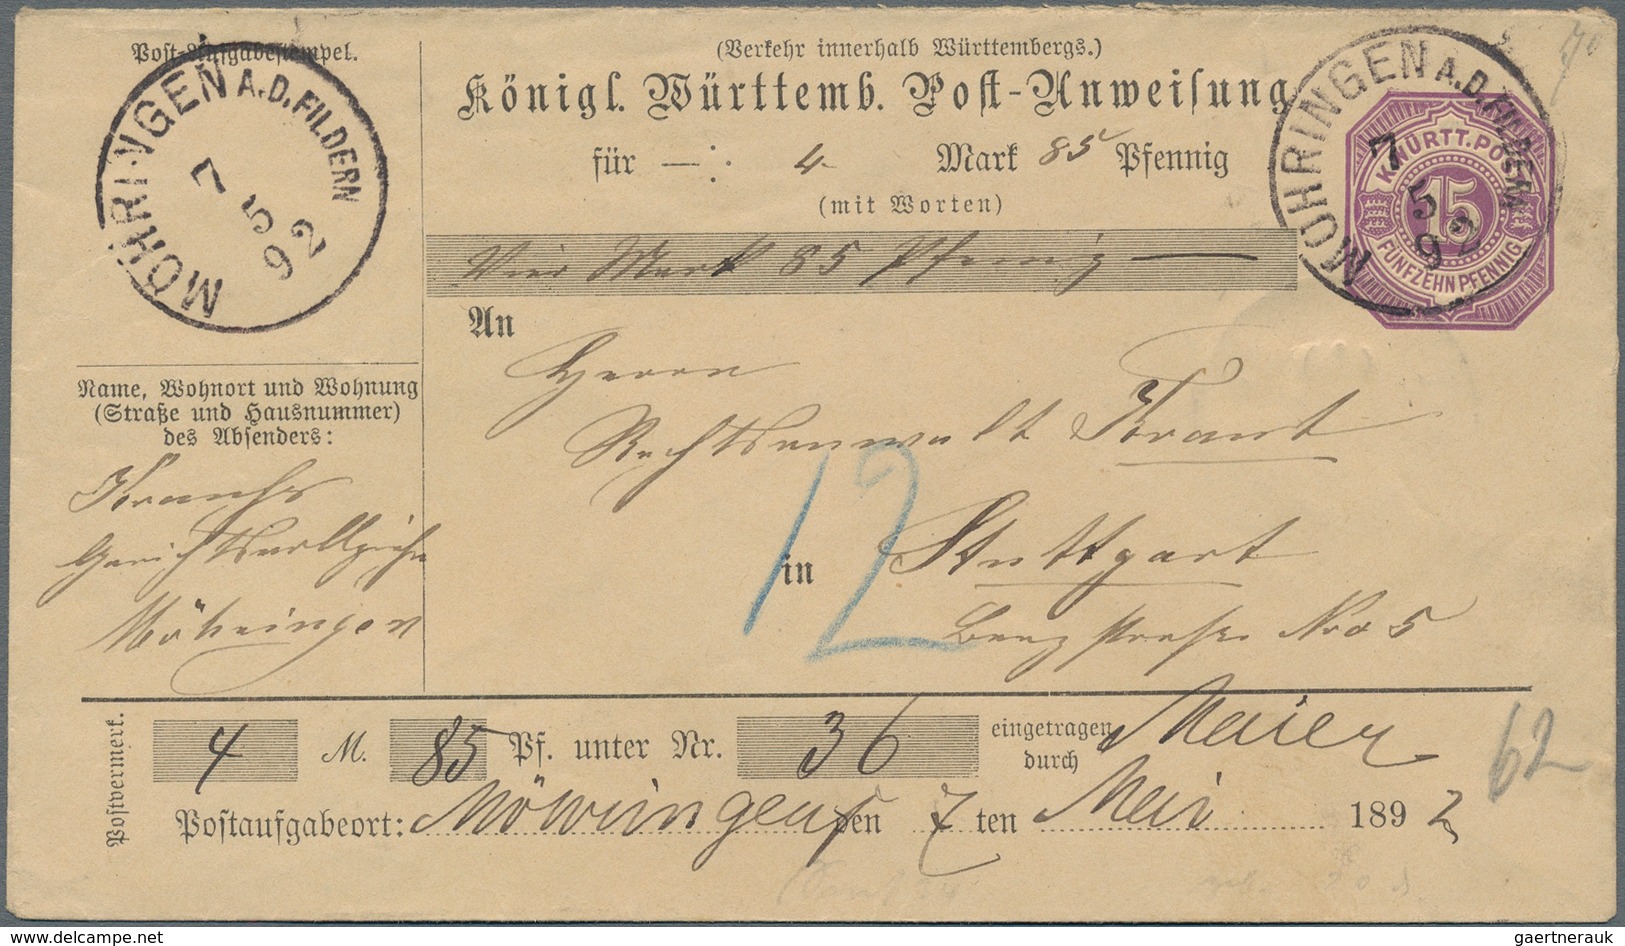 Post-Aufgabestempel.
MÖHRINGEN A.D.FILDERN
7
5
92
(Verkehr innerhalb Württembergs.)
Königl. Württemb. Post-Anweisung
für —: 4 Mark 85 Pfennig
(mit Worten)
Vier Mark 85 Pfennig —
MÖHRINGEN A.D.FILDERN
7
5
92
K. WÜRTT. POST
15
FÜNFZEHN PFENNIG
An
Herrn
Rechtsanwalt Kraut
12
in Stuttgart
Nro 5
Name, Wohnort und Wohnung
(Straße und Hausnummer)
des Absenders:
Gerichtsvollzieher
Möhringen
Postvermerk.
4 M. 85 Pf. unter Nr. 36 eingetragen durch Maier
62
Postaufgabeort: Möhringen den 7 ten Mai 1892
delcampe.net
gaertnerauk